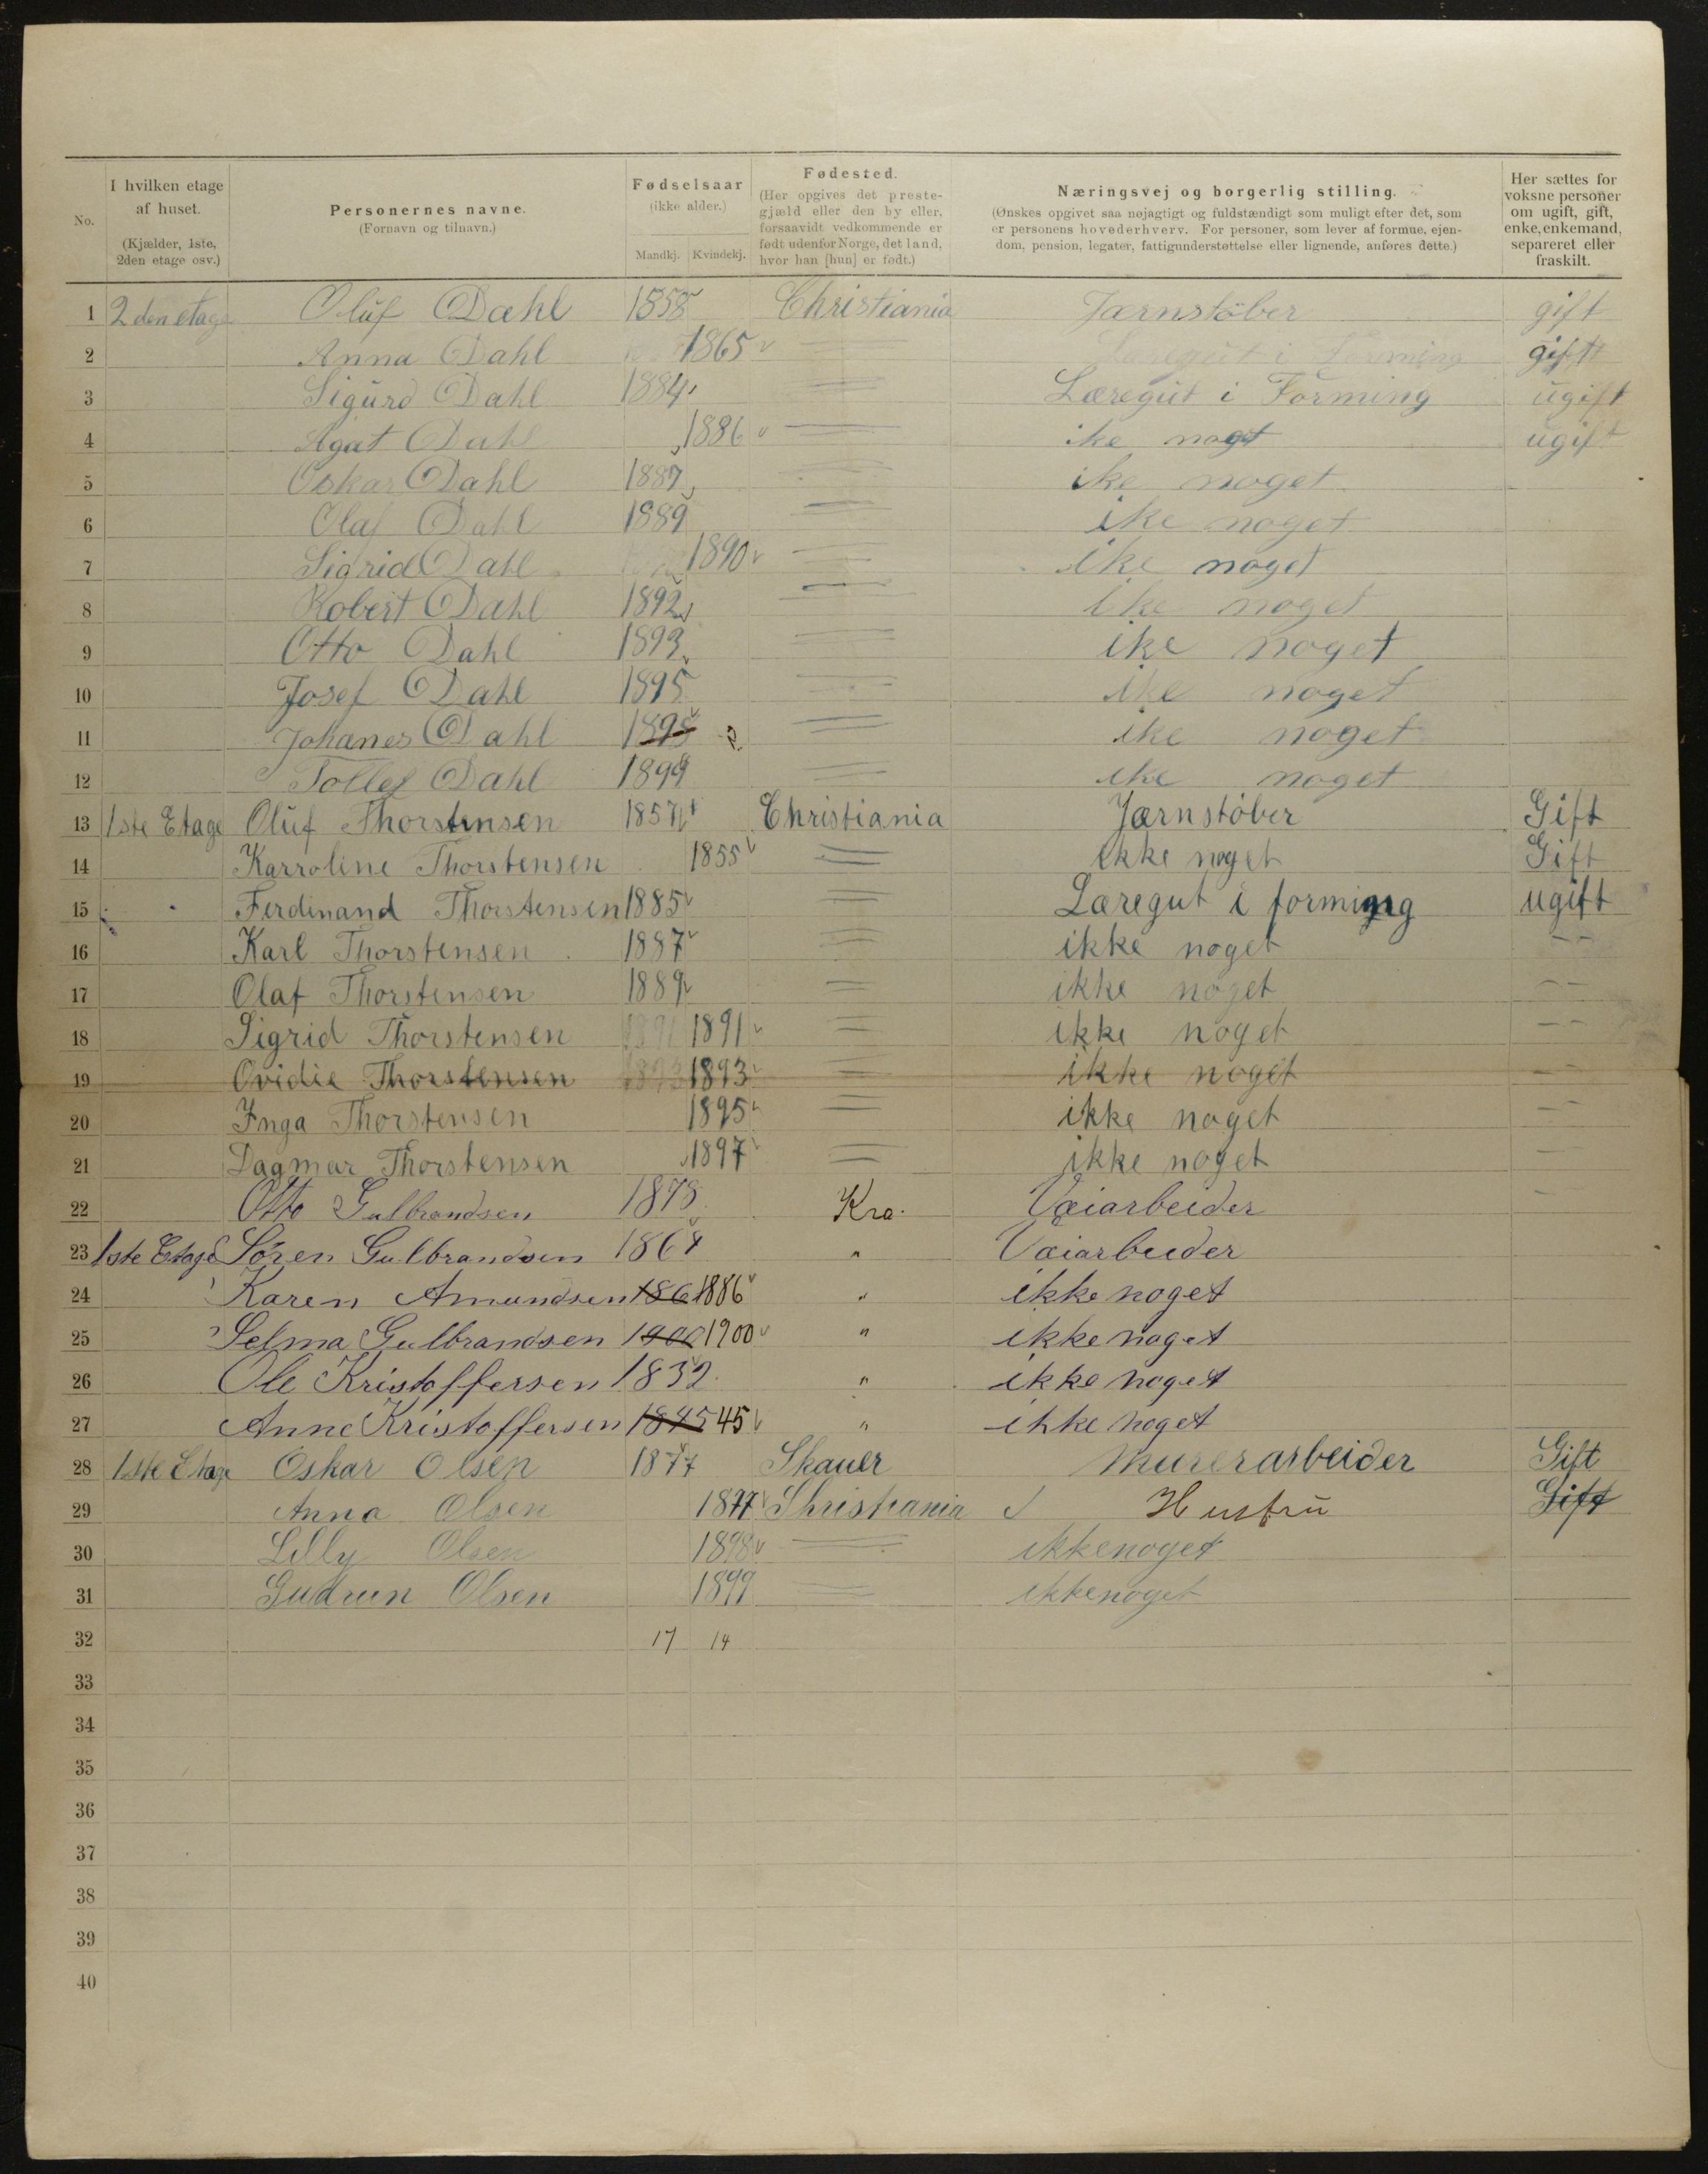 No. I hvilken etage af huset. (Kjælder, 1ste, 2den etage osv.) Personernes navne. (Fornavn og tilnavn.) Fødselsaar (ikke alder.) Mandkj. Kvindekj. Fødested. (Her opgives det prestegjæld eller den by eller, forsaavidt vedkommende er født udenfor Norge, det land, hvor han [hun] er født.) Næringsvej og borgerlig stilling. (Ønskes opgivet saa nøjagtigt og fuldstændigt som muligt efter det, som er personens hovederhverv. For personer, som lever af formue, ejendom, pension, legater, fattigunderstøttelse eller lignende, anføres dette.) Her sættes for voksne personer om ugift, gift, enke, enkemand, separeret eller fraskilt.
1 2den etage Oluf Dahl 1858 Christiania Jærnstöber gift
2 Anna Dahl 1865 — gift
3 Sigurd Dahl 1884 — Læregut i Forming ugift
4 Agat Dahl 1886 — ike noget ugift
5 Oskar Dahl 1887 — ike noget
6 Olaf Dahl 1889 — ike noget
7 Sigrid Dahl 1890 — ike noget
8 Robert Dahl 1892 — ike noget
9 Otto Dahl 1893 — ike noget
10 Josef Dahl 1895 — ike noget
11 Johanes Dahl — ike noget
12 Tollef Dahl 1899 — ike noget
13 1ste Etage Oluf Thorstensen 1857 Christiania Jærnstöber Gift
14 Karroline Thorstensen 1855 — ikke noget Gift
15 Ferdinand Thorstensen 1885 — Læregut i forming ugift
16 Karl Thorstensen 1887 — ikke noget — —
17 Olaf Thorstensen 1889 — ikke noget — —
18 Sigrid Thorstensen 1891 1891 — ikke noget — —
19 Ovidie Thorstensen 1893 1893 — ikke noget — —
20 Ynga Thorstensen 1895 — ikke noget — —
21 Dagmar Thorstensen 1897 — ikke noget —
22 Otto Gulbrandsen 1878 Kra. Væiarbeider —
23 1ste Etage Søren Gulbrandsen 1864 " Væiarbeider
24 Karen Amundsen 186 1886 " ikke noget
25 Selma Gulbrandsen 1900 1900 " ikke noget
26 Ole Kristoffersen 1832 " ikke noget
27 Anne Kristoffersen 1845 45 " ikke noget
28 1ste Etage Oskar Olsen 1877 Skauer Murerarbeider Gift
29 Anna Olsen 1877 Shristiania Hustru Gift
30 Lilly Olsen 1898 — ikkenoget
31 Gudrun Olsen 1899 — ikkenoget
32 17 14
33
34
35
36
37
38
39
40